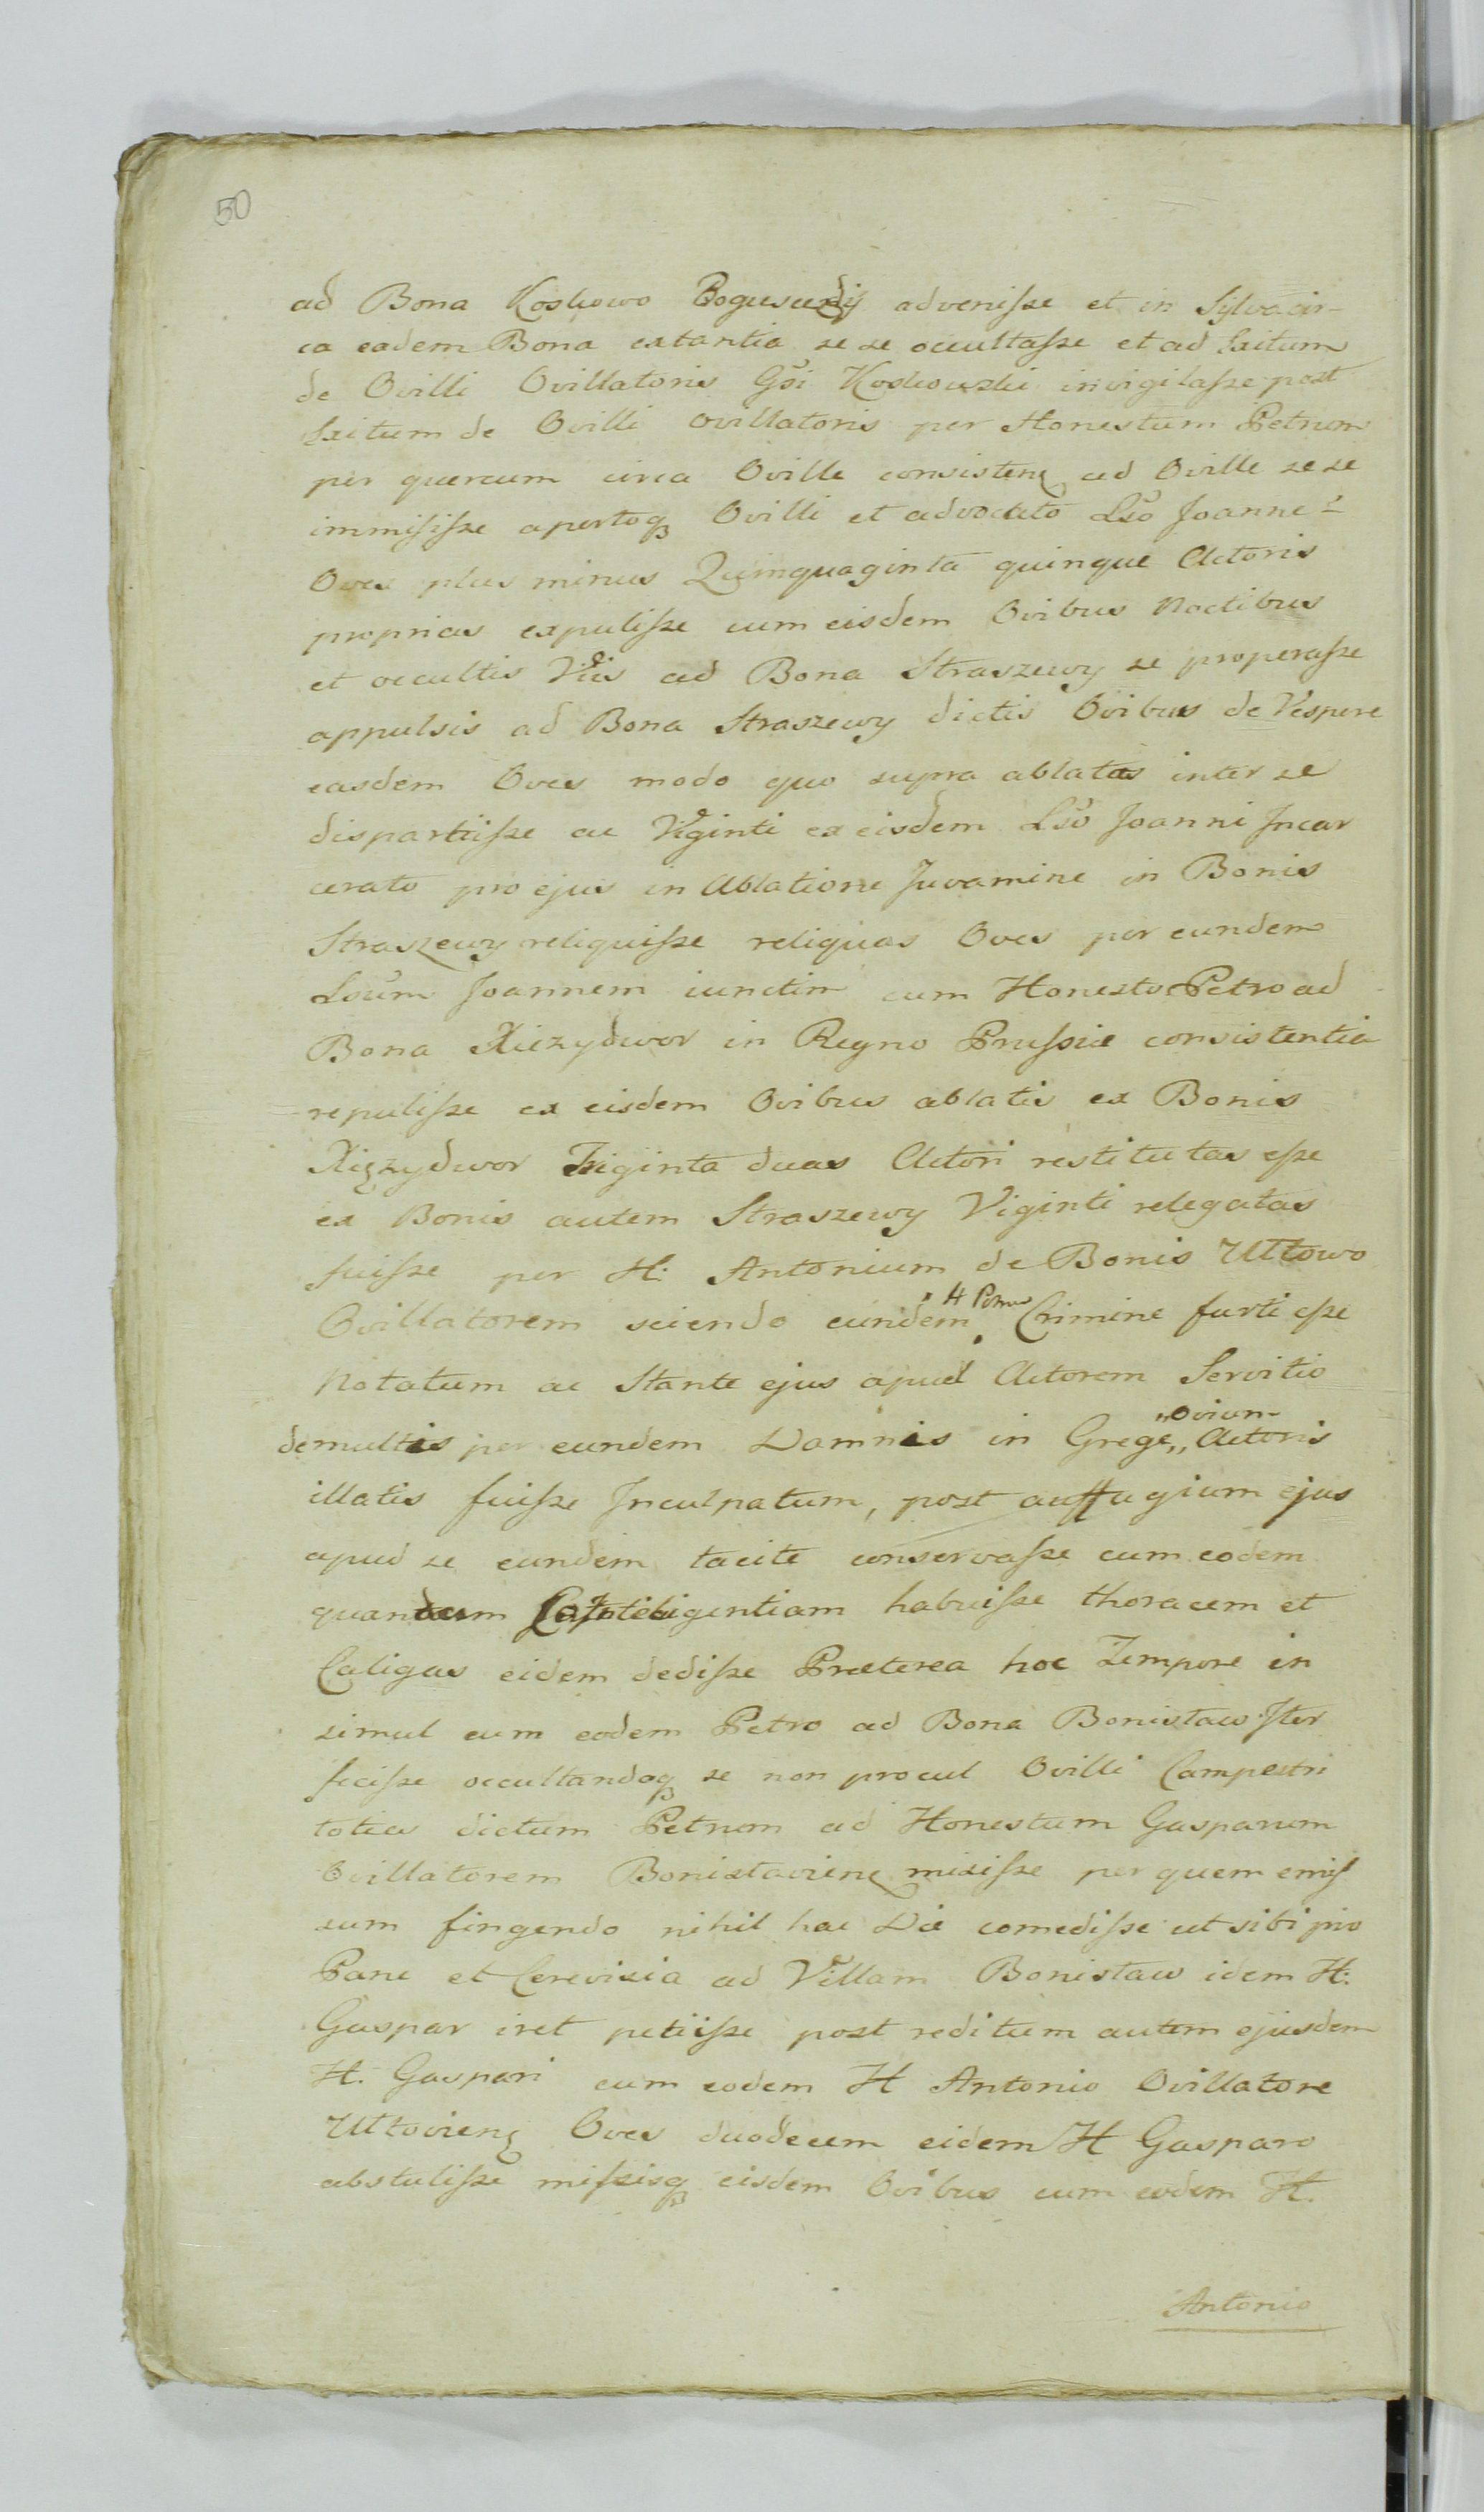 50
ad Bona Koskowo Bogusudÿ advenisse et in Sylva cir-
ca eadem Bona extantia se se occultasse et ad Exitum
de Ovilli Ovillatoris Gsi Koskowski invigilasse post
Exitum de Ovilli Ovillatoris per Honestum Petrum
per quercum circa Oville consisten ad Oville se se
immisisse apertoq Ovilli et advocato Lso Joanne
Oves plus minus Quinquaginta quinque Actoris
proprias expulisse cum eisdem Ovibus noctibus
et occultis Viis ad Bona Straszewy se properasse
appulsis ad Bona Straszewy dictis Ovibus de Vespere
easdem Oves modo quo supra ablatas inter se
dispartiisse ac Viginti ex eisdem Lso Joanni Incar
cerato pro ejus in Ablatione Juvamine in Bonis
Straszewy reliquisse reliquas Oves per eundem
Lsum Joannem iunctim cum Honesto Petro ad
Bona Xiezydwor in Regno Prussiæ consistentia
repulisse ex eisdem Ovibus ablatis ex Bonis
Xięzydwor Triginta duas Actori restitutas esse
ex Bonis autem Straszewy Viginti relegatas
fuisse per H: Antonium de Bonis Ułtowo
Ovillatorem sciendo eundem H Petrum Crimine furti esse
notatum ac Stante ejus apud Actorem Servitio
de multis per eundem Damnis in Grege „Ovium„ Actoris
illatis fuisse Inculpatum, post auffugium ejus
apud se eundem tacite conservasse cum eodem
quandam habuisse thoracem et
Caligas eidem dedisse Præterea hoc Tempore in
simul cum eodem Petro ad Bona Bonisław Iter
fecisse occultandoq se non procul Ovilli Campestri
toties dictum Petrum ad Honestum Gasparum
Ovillatorem Bonistavien misisse per quem emis
sum fingendo nihil hac Die comedisse ut sibi pro
Pane et Cerevisia ad Villam Bonisław idem H:
Gaspar iret petiisse post reditum autem ejusdem
H. Gaspari cum eodem H Antonio Ovillatore
Ułtovien Oves duodecem eidem H Gasparo
abstulisse missisq eisdem Ovibus cum eodem H.
Antonio